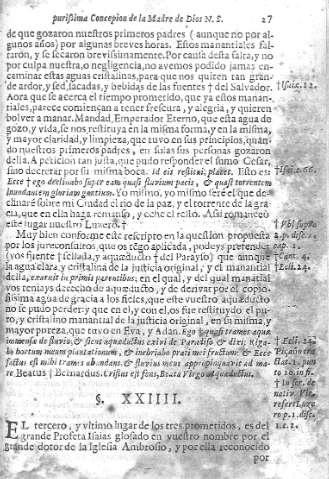 purissima Concepcion de la Madre de Dios N. S. 27
de que gozaron nuestros primeros padres ( aunque no por al-
gunos años) por algunas breves horas. Estos manantiales fal-
taròn, y se secaron brevissimamente. Por causa desta falta, y no
por culpa nuestra, o negligencia, no avemos podido jamas en-
caminar estas aguas cristalinas, para que nos quiten tan gran-
de ardor, y sed, sacadas, y bebidas de las fuentes † del Salvador.
Aora que se acerca el tiempo prometido, que ya estos manan-
tiales, parece comiençan a tener frescura, y alegria, y quieren
bolver a manar. Mandad, Emperador Eterno, que esta agua de
gozo, y vida, se nos restituya en la misma forma, y en la misma,
y mayor claridad, y limpieza, que tuvo en sus principios, quan-
do nuestros primeros padres, en salas sus personas gozaron
della. A peticion tan justa, que pudo responder el sumo Cesar,
sino decretar por su misma boca. Id eis restitui placet. Esto es:
Ecce † ego declinabo super eam quasi fluvium pacis, & quasi torrentem
inundantem gloriam gentium. Yo mismo, yo mismo serè el que de-
clinarè sobre mi Ciudad el rio de la paz, y el torrente de la gra-
cia, que en ella haga remanso, y eche el resto. Assi romanceò
este lugar nuestro
Muy bien conforma este rescripto en la question propuesta
por los jureconsultos, que os tẽgo aplicada, podeys pretender
(vos fuente † sellada, y aqueducto † del Parayso) que aunque
la agua clara, y cristalina de la justicia original, y el manantial
della, exaruit in primis parentibus: en el qual, y del qual manantial
vos teniays derecho de aqueducto, y de derivar por èl copio-
sissima agua de gracia a los fieles, que este vuestro aqueducto
no se pudo perder: y que en el, y con el, os fue restituydo el pu-
ro, y cristalino manantial de la justicia original, en su misma, y
mayor pureza, que tuvo en Eva, y Adan. Ego † quasi trames aquæ
immensæ de fluvio, & sicut aquæductus exivi de Paradiso & dixi: Riga-
bo hortum meum plantationum, & inebriabo prati mei fructum: & Ecce
factus est mihi trames abundans, & fluvius meus appropinquavit ad ma-
re Beatus † Bernardus. Cristus est fons, Beata Virgo aquæductus.
† Isaiæ. 12.
† Isaiæ. 66.
† Vbi supra
2. p. disc. 1.
cap. 1.
† Cant. 4.
† Ecli. 24.
† Ecli. 24.
§. XXIIII.
EL tercero, y ultimo lugar de los tres prometidos, es del
grande Profeta Isaias glosado en vuestro nombre por el
grande dotor de la Iglesia Ambrosio, y por ella reconocido
por